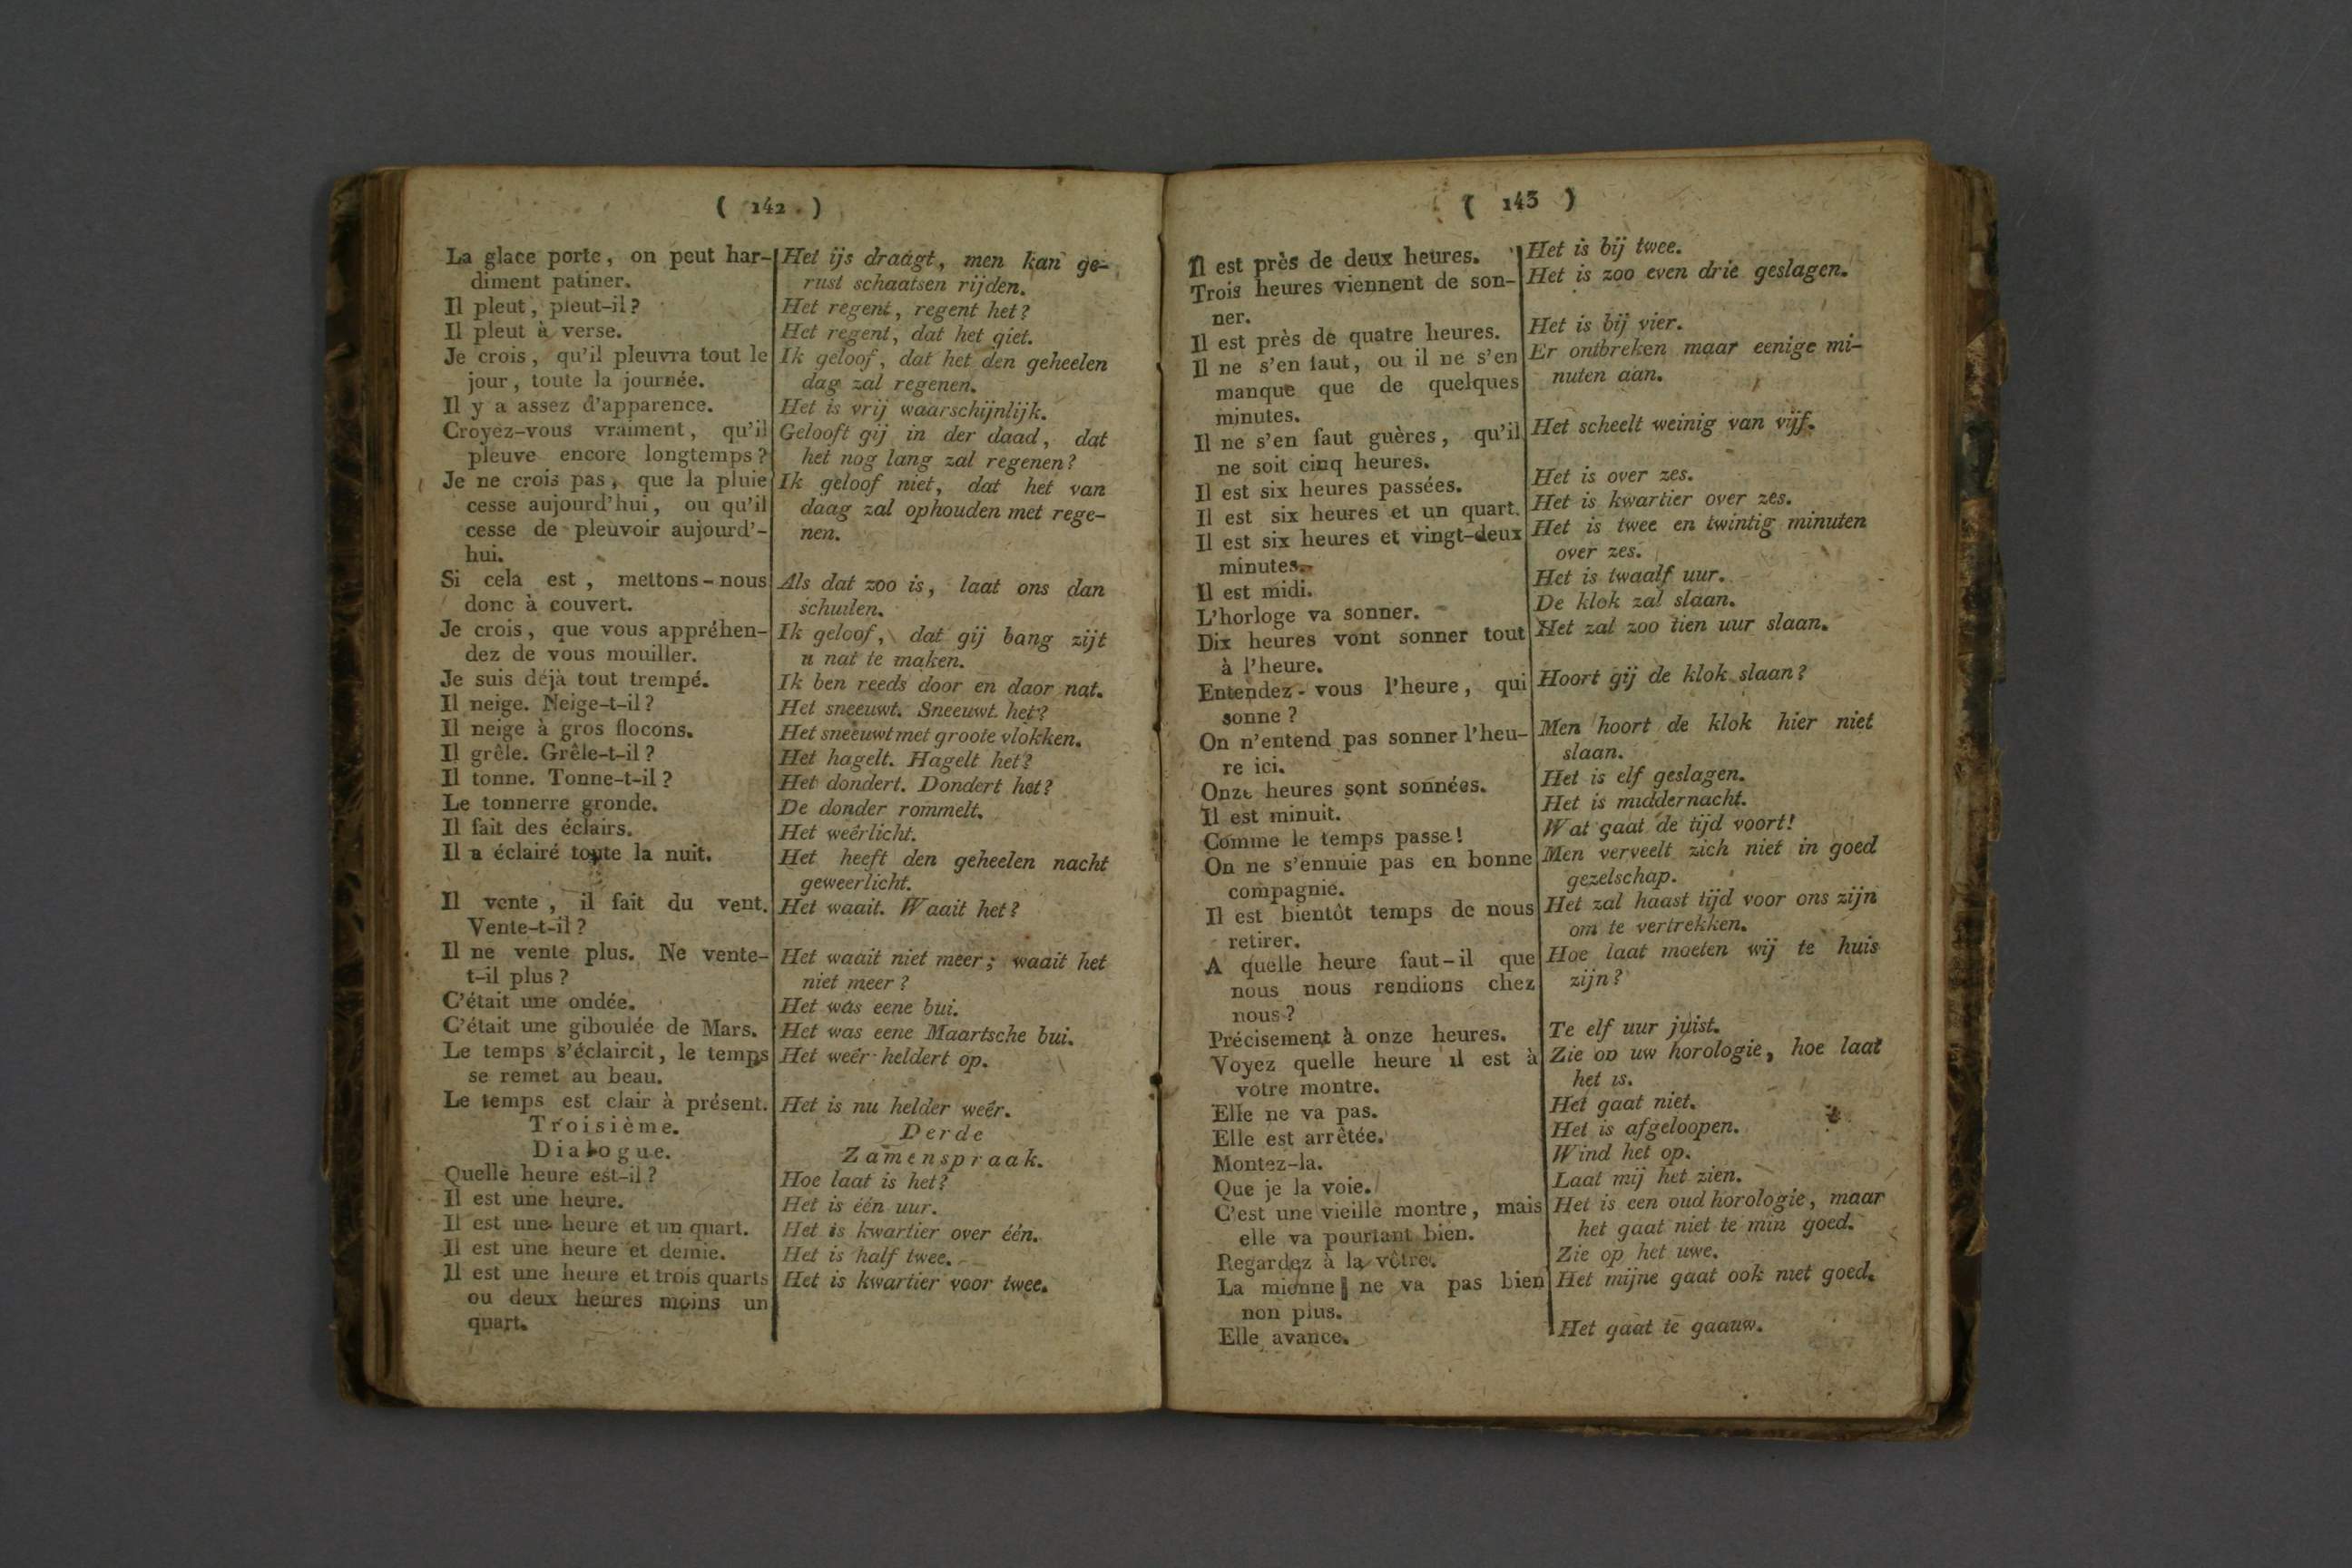 ( 142 )
La glace porte, on peut har-
diment patiner.
Il pleut, pleut-il?
Il pleut à verse.
Je crois, qu'il pleuvra tout le
jour, toute la journée.
Il y a assez d'apparence.
Croyez-vous vraiment, qu'il
pleuve encore longtemps?
Je ne crois pas, que la pluie
cesse aujourd'hui, ou qu'il
cesse de pleuvoir aujourd'-
hui.
Si cela est, mettons-nous
donc à couvert.
Je crois, que vous appréhen-
dez de vous mouiller.
Je suis déjà tout trempé.
Il neige. Neige-t-il?
Il neige à gros flocons.
Il grêle. Grêle-t-il?
Il tonne. Tonne-t-il?
Le tonnerre gronde.
Il fait des éclairs.
Il a éclairé toute la nuit.
Il vente, il fait du vent.
Vente-t-il?
Il ne vente plus. Ne vente-
t-il plus?
C'était une ondée.
C'était une giboulée de Mars.
Le temps s'éclaircit, le temps
se remet au beau.
Le temps est clair à présent.
Troisième.
Dialogue.
Quelle heure est-il?
Il est une heure.
Il est une heure et un quart.
Il est une heure et demie.
Il est une heure et trois quarts
ou deux heures moins un
quart.
Het ijs draagt, men kan ge-
rust schaatsen rijden.
Het regent, regent het?
Het regent, dat het giet.
Ik geloof, dat het den geheelen
dag zal regenen.
Het is vrij waarschijnlijk.
Gelooft gij in der daad, dat
het nog lang zal regenen?
Ik geloof niet, dat het van
daag zal ophouden met rege-
nen.
Als dat zoo is, laat ons dan
schuilen.
Ik geloof, dat gij bang zijt
u nat te maken.
Ik ben reeds door en daor nat.
Het sneeuwt. Sneeuwt het?
Het sneeuwt met groote vlokken.
Het hagelt. Hagelt het?
Het dondert. Dondert het?
De donder rommelt.
Het weêrlicht.
Het heeft den geheelen nacht
geweerlicht.
Het waait. Waait het?
Het waait niet meer; waait het
niet meer?
Het was eene bui.
Het was eene Maartsche bui.
Het weêr heldert op.
Het is nu helder weêr.
Derde
Zamenspraak.
Hoe laat is het?
Het is één uur.
Het is kwartier over één.
Het is half twee.
Het is kwartier voor twee.
( 143 )
Il est près de deux heures.
Trois heures viennent de son-
ner.
Il est près de quatre heures.
Il ne s'en faut, ou il ne s'en
manque que de quelques
minutes.
Il ne s'en faut guères, qu'il
ne soit cinq heures.
Il est six heures passées.
Il est six heures et un quart.
Il est six heures et vingt-deux
minutes.
Il est midi.
L'horloge va sonner.
Dix heures vont sonner tout
à l'heure.
Entendez-vous l'heure, qui
sonne?
On n'entend pas sonner l'heu-
re ici.
Onze heures sont sonnées.
Il est minuit.
Comme le temps passe!
On ne s'ennuie pas en bonne
compagnie.
Il est bientôt temps de nous
retirer.
A quelle heure faut-il que
nous nous rendions chez
nous?
Précisement à onze heures.
Voyez quelle heure il est à
votre montre.
Elle ne va pas.
Elle est arrêtée.
Montez-la.
Que je la voie.
C'est une vieille montre, mais
elle va pourtant bien.
Regardez à la vôtre.
La mienne ne va pas bien
non plus.
Elle avance.
Het is bij twee.
Het is zoo even drie geslagen.
Het is bij vier.
Er ontbreken maar eenige mi-
nuten aan.
Het scheelt weinig van vijf.
Het is over zes.
Het is kwartier over zes.
Het is twee en twintig minuten
over zes.
Het is twaalf uur.
De klok zal slaan.
Het zal zoo tien uur slaan.
Hoort gij de klok slaan?
Men hoort de klok hier niet
slaan.
Het is elf geslagen.
Het is middernacht.
Wat gaat de tijd voort!
Men verveelt zich niet in goed
gezelschap.
Het zal haast tijd voor ons zijn
om te vertrekken.
Hoe laat moeten wij te huis
zijn?
Te elf uur juist.
Zie op uw horologie, hoe laat
het is.
Het gaat niet.
Het is afgeloopen.
Wind het op.
Laat mij het zien.
Het is een oud horologie, maar
het gaat niet te min goed.
Zie op het uwe.
Het mijne gaat ook niet goed.
Het gaat te gaauw.